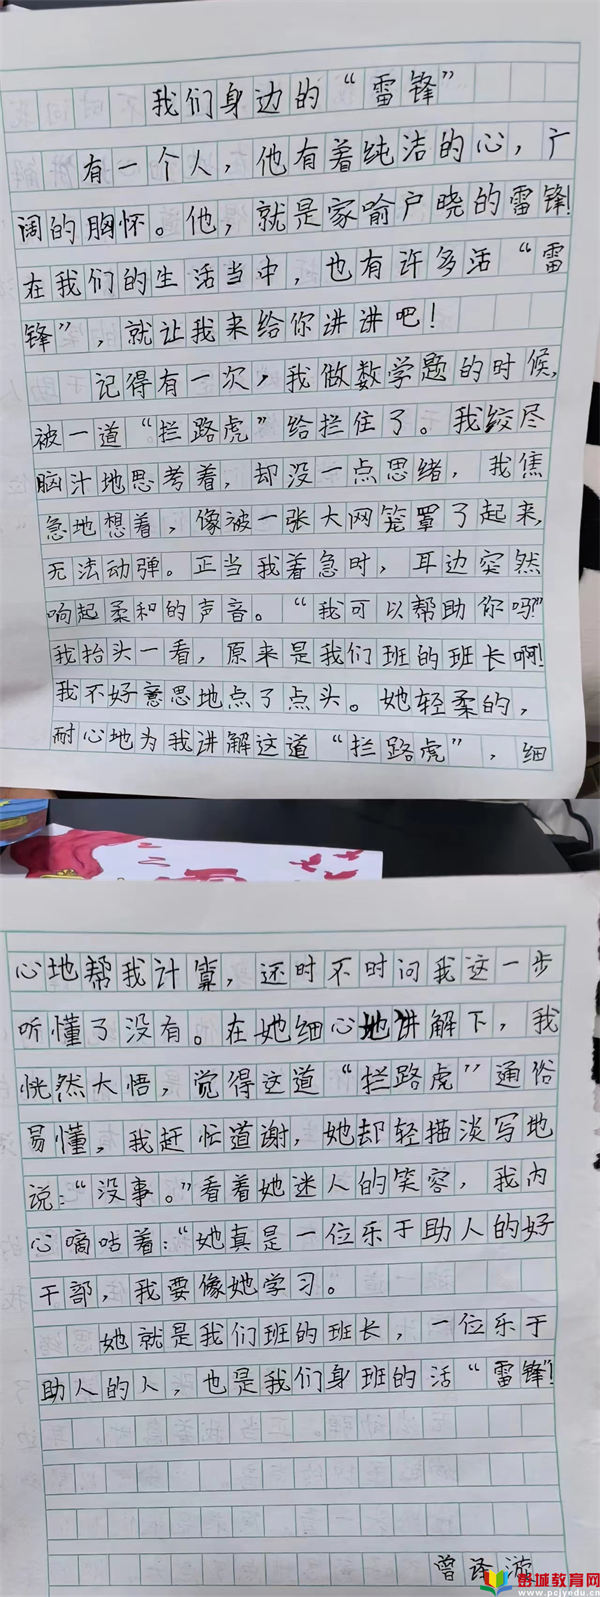 我们身边的“雷锋”
有一个人，他有着纯洁的心，广
阔的胸怀。他，就是家喻户晓的雷锋!
在我们的生活当中，也有许多活“雷
锋”，就让我来给你讲讲吧!
记得有一次，我做数学题的时候，
被一道“拦路虎”给拦住了。我绞尽
脑汁地思考着，却没一点思绪，我焦
急地想着，像被一张大网笼罩了起来，
无法动弹。正当我着急时，耳边突然
响起柔和的声音。“我可以帮助你吗?”
我抬头一看，原来是我们班的班长啊!
我不好意思地点了点头。她轻柔的，
耐心地为我讲解这道“拦路虎”，细
心地帮我计算，还时不时问我这一步
听懂了没有。在她细心地讲解下，我
恍然大悟，觉得这道“拦路虎”通俗
易懂，我赶忙道谢，她却轻描淡写地
说：“没事。”看着她迷人的笑容，我内
心嘀咕着：“她真是一位乐于助人的好
干部，我要像她学习。
她就是我们班的班长，一位乐于
助人的人，也是我们身班的活“雷锋”!
曾译游
彭城教育网
www.pcjyedu.cn